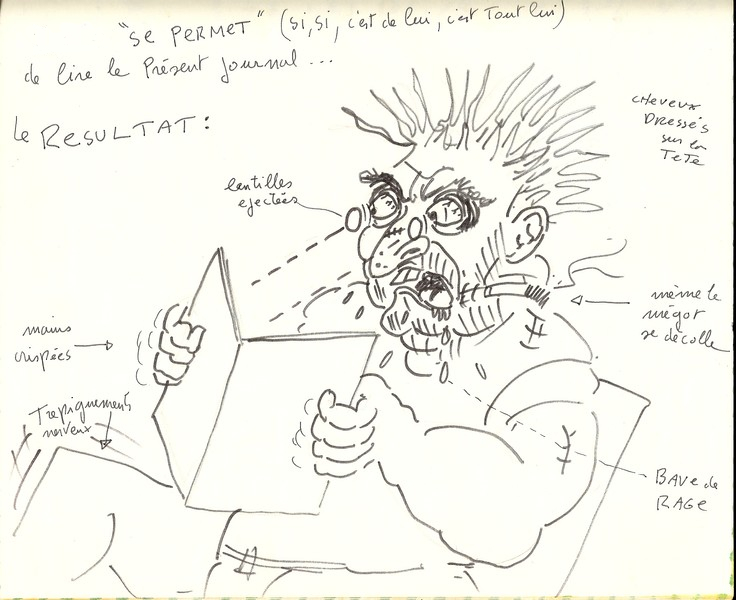 "se PERMET" (si, si, c'est de lui, c'est Tout lui)
de lire le Présent Journal ...
le RESULTAT :
CHEVEUX
DRESSÉS
sur la
TeTe
lentilles
ejectées
même le
mégot
se décolle
mains
crispées
Trepignements
nerveux
BAVe de
RAGe